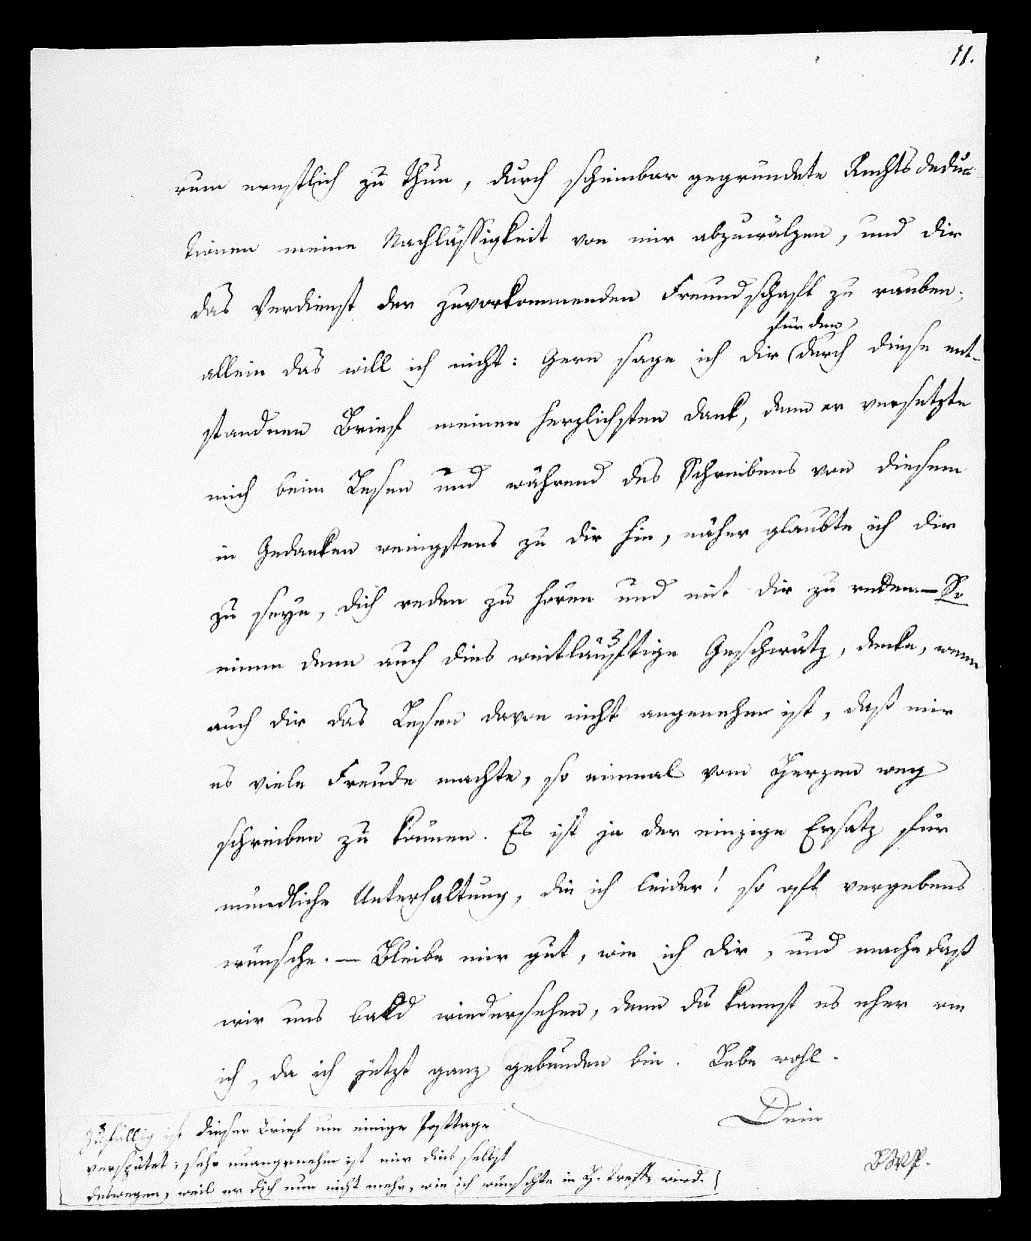 11.
rum ernstlich zu thun, durch scheinbar gegründete Rechtsdeduc-
tionen meine Nachlässigkeit von mir abzuwälzen, und dir
das Verdienst der zuvorkommenden Freundschaft zu rauben;
für den
allein das will ich nicht: Gern sage ich dir durch diese ent-
standnen Brief meinen herzlichsten Dank, denn er versetzte
mich beim Lesen und während des Schreibens von diesem
in Gedanken wenigstens zu dir hin, näher glaubte ich dir
zu seyn, dich reden zu hören und mit dir zu reden. — So
nimm denn auch dies weitläuftige Geschwätz, denke, wenn
auch dir das Lesen davon nicht angenehm ist, daß mir
es viele Freude machte, so einmal vom Herzen weg
schreiben zu können. Es ist ja der einzige Ersatz für
mündliche Unterhaltung, die ich leider! so oft vergebens
wünsche. — Bleibe mir gut, wie ich dir, und mache daß
wir uns bald wiedersehen, denn du kannst es eher als
ich, da ich jetzt ganz gebunden bin. Lebe wohl.
Dein
Zufällig ist dieser Brief um einige Posttage
verspätet; sehr unangenehm ist mir dies selbst
deswegen, weil er dich nun nicht mehr, wie ich wünschte in H. treffen wird.